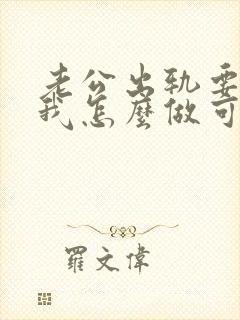 老公出軌要
我怎麼做可
羅文偉